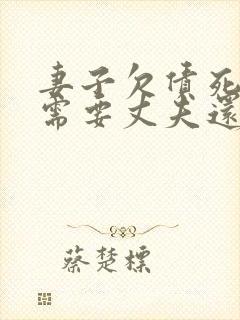 妻子欠债死
需要丈夫還
蔡楚標